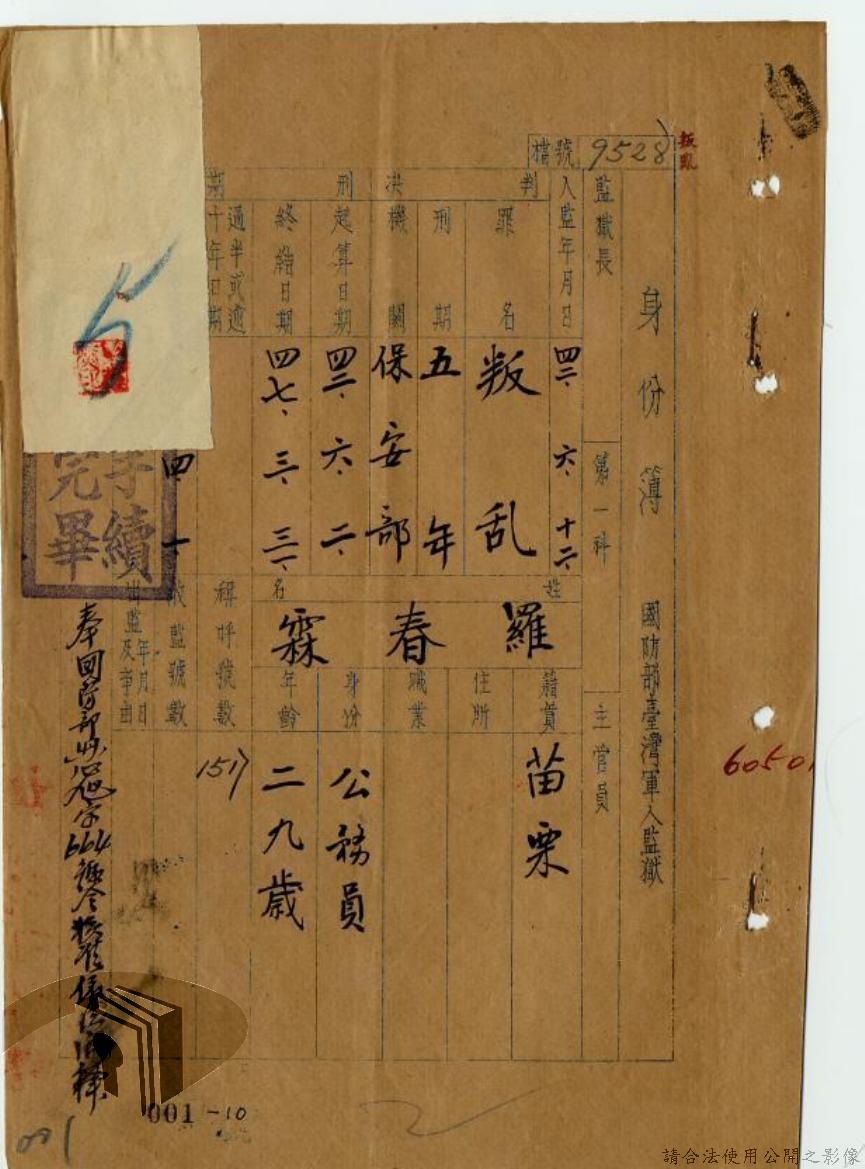 叛亂
檔號 9528
身份簿 國防部臺灣軍人監獄
監獄長 第一科 主管員
入監年月日 四三、六、十二、
判決刑期
罪名 叛乱
刑期 五年
機關 保安部
起算日期 四三、六、二、
終結日期 四七、三、三一、
過半或逾十年日期
姓名 羅春霖
籍貫 苗栗
住所
職業
身份 公務員
年齡 二九歲
稱呼號數 1517
監號數
出監年月日及事由
四、一
完畢 手續
奉國防部 字664號令
60501
001-10
001
請合法使用公開之影像